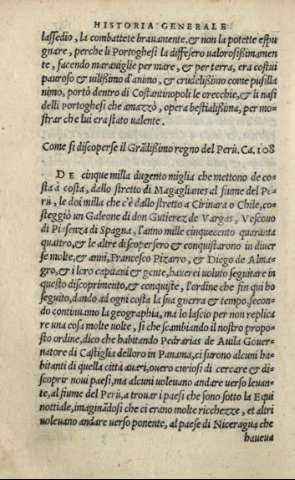 HISTORIA GENERALE
lassedio, la combattete bravamente, & non la potette espu
gnare, perche li Portoghesi la diffesero valorosissimamen
te, facendo maraviglie per mare, & per terra, era costui
pauroso & vilissimo d'animo, & crudelissimo come pusilla
nimo, portò dentro di Costantinopoli le orecchie, & li nasi
delli Portoghesi che amazzò, opera bestialissima, per mo-
strar che lui era stato valente.
Come si discoperse il Grãdissimo regno del Perù. Ca. 108
DE cinque milla dugento miglia che mettono de co-
sta à costa, dallo stretto di Magaglianes al fiume del Pe-
rù, le doi milla che c'è dallo stretto a Cirinara o Chile, co-
steggiò un Galeone di don Gutierez de Vargas, Vescouo
di Piasenza di Spagna, l'anno mille cinquecento quaranta
quattro, & le altre discopersero & conquistarono in diuer
se molte, & anni, Francesco Pizarro, & Diego de Alma-
gro, & i loro capitani & gente, hauerei voluto seguitare in
questo discoprimento, & conquiste, l'ordine che fin quì ho
seguito, dando ad ogni costa la sua guerra & tempo, secon-
do continuamo la geographia, ma lo lascio per non replica
re una cosa molte uolte, si che scambiando il nostro propo-
sito ordine, dico che habitando Pedrarias de Auila Gouer-
natore di Castiglia delloro in Panamà, ci furono alcuni ha-
bitanti di quella città auari, ouero curiosi di cercare & di-
scoprir noui paesi, ma alcuni uoleuano andare verso leuan-
te, al fiume del Perù, a trouar i paesi che sono sotto la Equi
nottiale, imaginãdosi che ci erano molte ricchezze, et altri
uoleuano andare uerso ponente, al paese di Nicaragua che
haueua